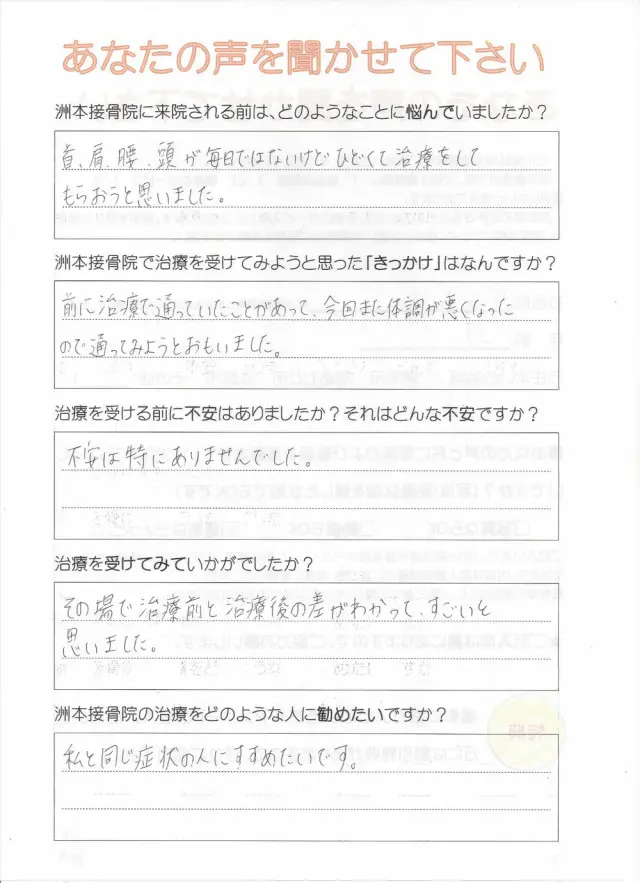 あなたの声を聞かせて下さい
洲本接骨院に来院される前は、どのようなことに悩んでいましたか？
首、肩、腰、頭が毎日ではないけどひどくて治療をして
もらおうと思いました。
洲本接骨院で治療を受けてみようと思った「きっかけ」はなんですか？
前に治療で通っていたことがあって、今回また体調が悪くなった
ので通ってみようとおもいました。
治療を受ける前に不安はありましたか？それはどんな不安ですか？
不安は特にありませんでした。
治療を受けてみていかがでしたか？
その場で治療前と治療後の差がわかって、すごいと
思いました。
洲本接骨院の治療をどのような人に勧めたいですか？
私と同じ症状の人にすすめたいです。